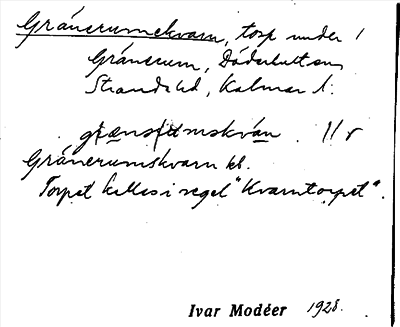 Gránerumskvarn, torp under
Gránerum, Döderhults sn
Stranda hd, Kalmar l.
Gránerumskvarn kb.
Torpet kallas i regel "Kvarntorpet".
Ivar Modéer 1928.